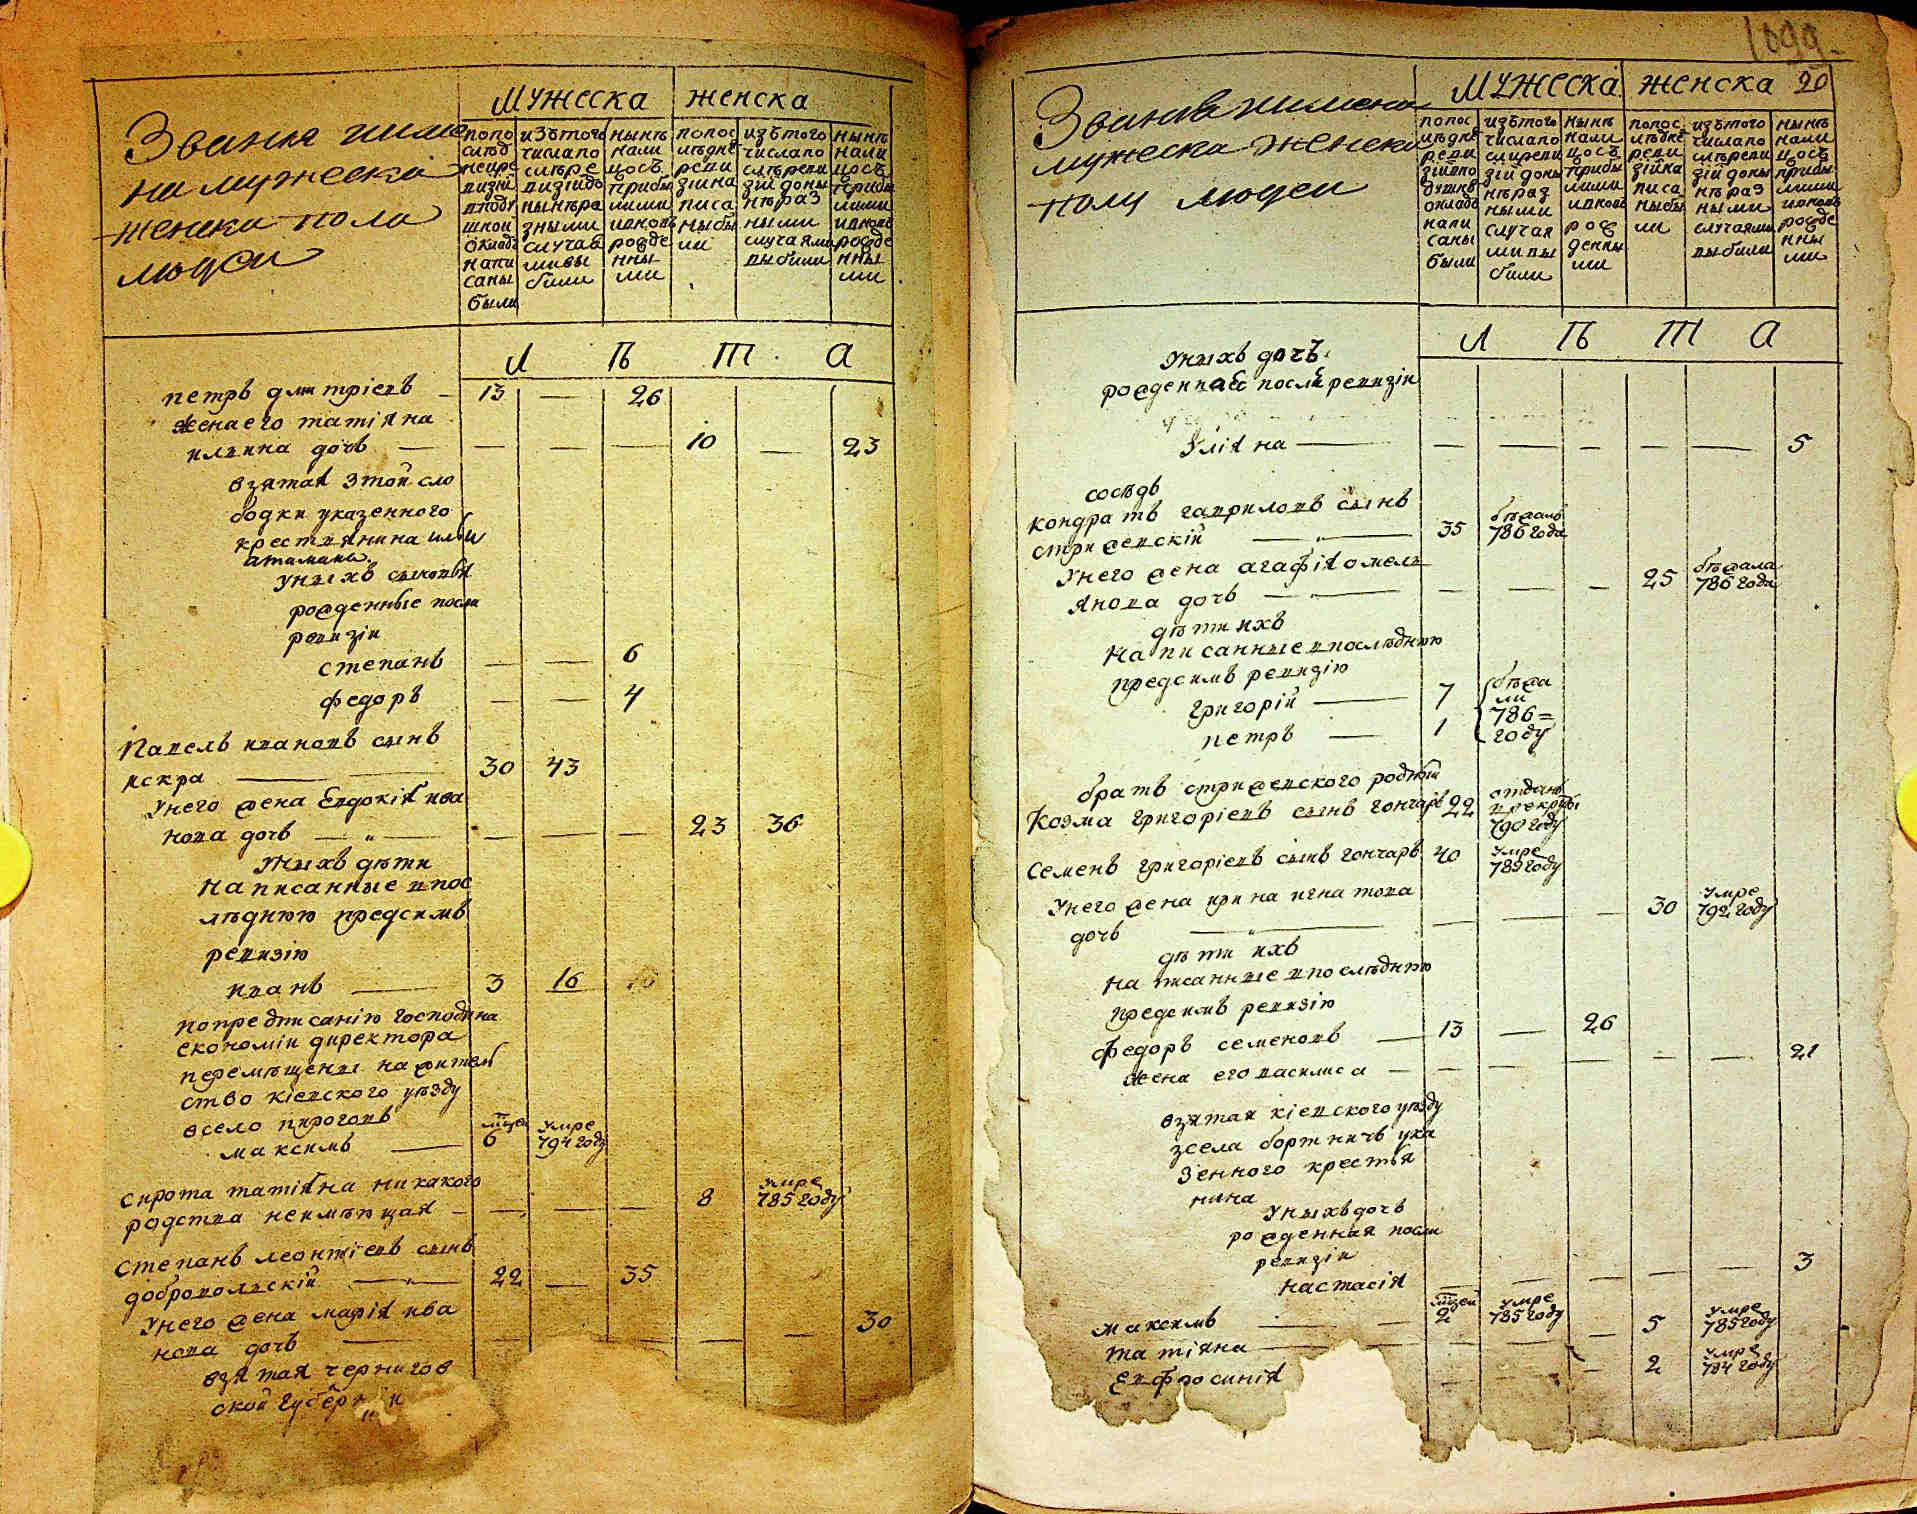 Званія иимѧ
на мужеска
женска пола
людеи
Мужеска
женска
попо
слѣд
неире
визиі
вподу
шнои
окладъ
напи
саны
были
изѣтого
числапо
слѣре
визіидо
нынѣра
зными
случаѧ
мивы
были
нынѣ
нали
цосъ
прибы
лыми
ивновь
рожде
нны
ми
попос
лѣдне
реви
зіина
писа
ныбы
ли
изѣтого
числапо
слѣреви
зіи доны
нѣраз
ными
случаями
выбыли
нынѣ
нали
цосъ
прибы
лыми
ивновь
рожде
нны
ми
Л Ѣ Т А
петръ дмитріевъ — 13 — 26
жена его татіѧна
илина дочь — — — — 10 — 23
взятаѧ этой сло
бодки указенного
крестіянина ильи
атамана
уныхъ сыновьѧ
рожденные посли
ревизіи
степанъ — — 6
федоръ — — 4
Павелъ ивановъ сынъ
искра — 30 43
Унего жена Евдокіѧ ива
нова дочь — „ — — — — 23 36
уныхъ дѣти
написанные впос
лѣднюю предсимъ
ревизію
иванъ — 3 16
попредписанію господина
економіи директора
перемѣщены нажител
ство кіевского уѣзду
всело пироговъ
максимъ — мцей 6 умре 794 году
Сирота татіѧна никакого
родства неимѣющаѧ — — — — 8 умре 785 году
Степанъ леонтіевъ сынъ
добровольскій — „ — 22 — 35
Унего жена маріѧ ива
нова дочь — — — — — — 30
взятаѧ чернигов
ской губерніи
1099
20
Званіѧ иимена
мужеска женска
полу людеи
Мужеска женска
попос
лѣдне
реви
зіивпо
душнъ
окладъ
напи
саны
были
изѣтого
числапо
слѣреви
зіи доны
нѣраз
ными
случая
мивы
были
нынѣ
нали
цосъ
прибы
лыми
ивновь
рож
денны
ми
попос
лѣдне
реви
зіина
писа
ныбы
ли
изѣтого
числапо
слѣреви
зіи доны
нѣраз
ными
случаями
выбыли
нынѣ
нали
цосъ
прибы
лыми
ивновь
рожде
нны
ми
Л Ѣ Т А
Уныхъ дочъ
рожденнаѧ послѣ ревизіи
Уліѧна — — — — — — 5
сосѣдъ
Кондратъ гавриловъ сынъ
стрижевскій — „ — 35 бѣжалъ 786 года
Унего жена агафіѧ омель
ѧнова дочь — — — — — 25 бѣжала 786 года
дѣти ихъ
Написанные впослѣднюю
предсимъ ревизію
григорій — 7 бѣжа
петръ — 1 ли 786= году
братъ стрижевского родный
Козма григоріевъ сынъ гончаръ 22 отданъ врекруты 790 году
Семенъ григоріевъ сынъ гончаръ 40 умре 789 году
Унего жена ирина игнатова
дочь — „ — — — — 30 умре 792 году
дѣти ихъ
написанные впослѣднюю
предсимъ ревизію
федоръ семеновъ — 13 — 26
жена его василиса — — — — — — 21
взятая кіевского уѣзду
зсела бортничъ ука
зенного крестья
нина
Уныхъ дочъ
рожденная посли
ревизіи
настасіѧ — — — — — 3
максимъ — — мцей 2 умре 785 году
татіяна — — — — 5 умре 785 году
Ефросиніѧ — — — 2 умре 784 году